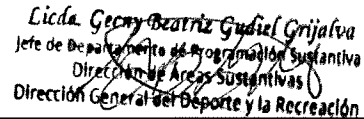 Licda. Gecny Beatriz Gudiel Grijalva
Jefe de Departamento de Programación Sustantiva
Dirección de Áreas Sustantivas
Dirección General del Deporte y la Recreación